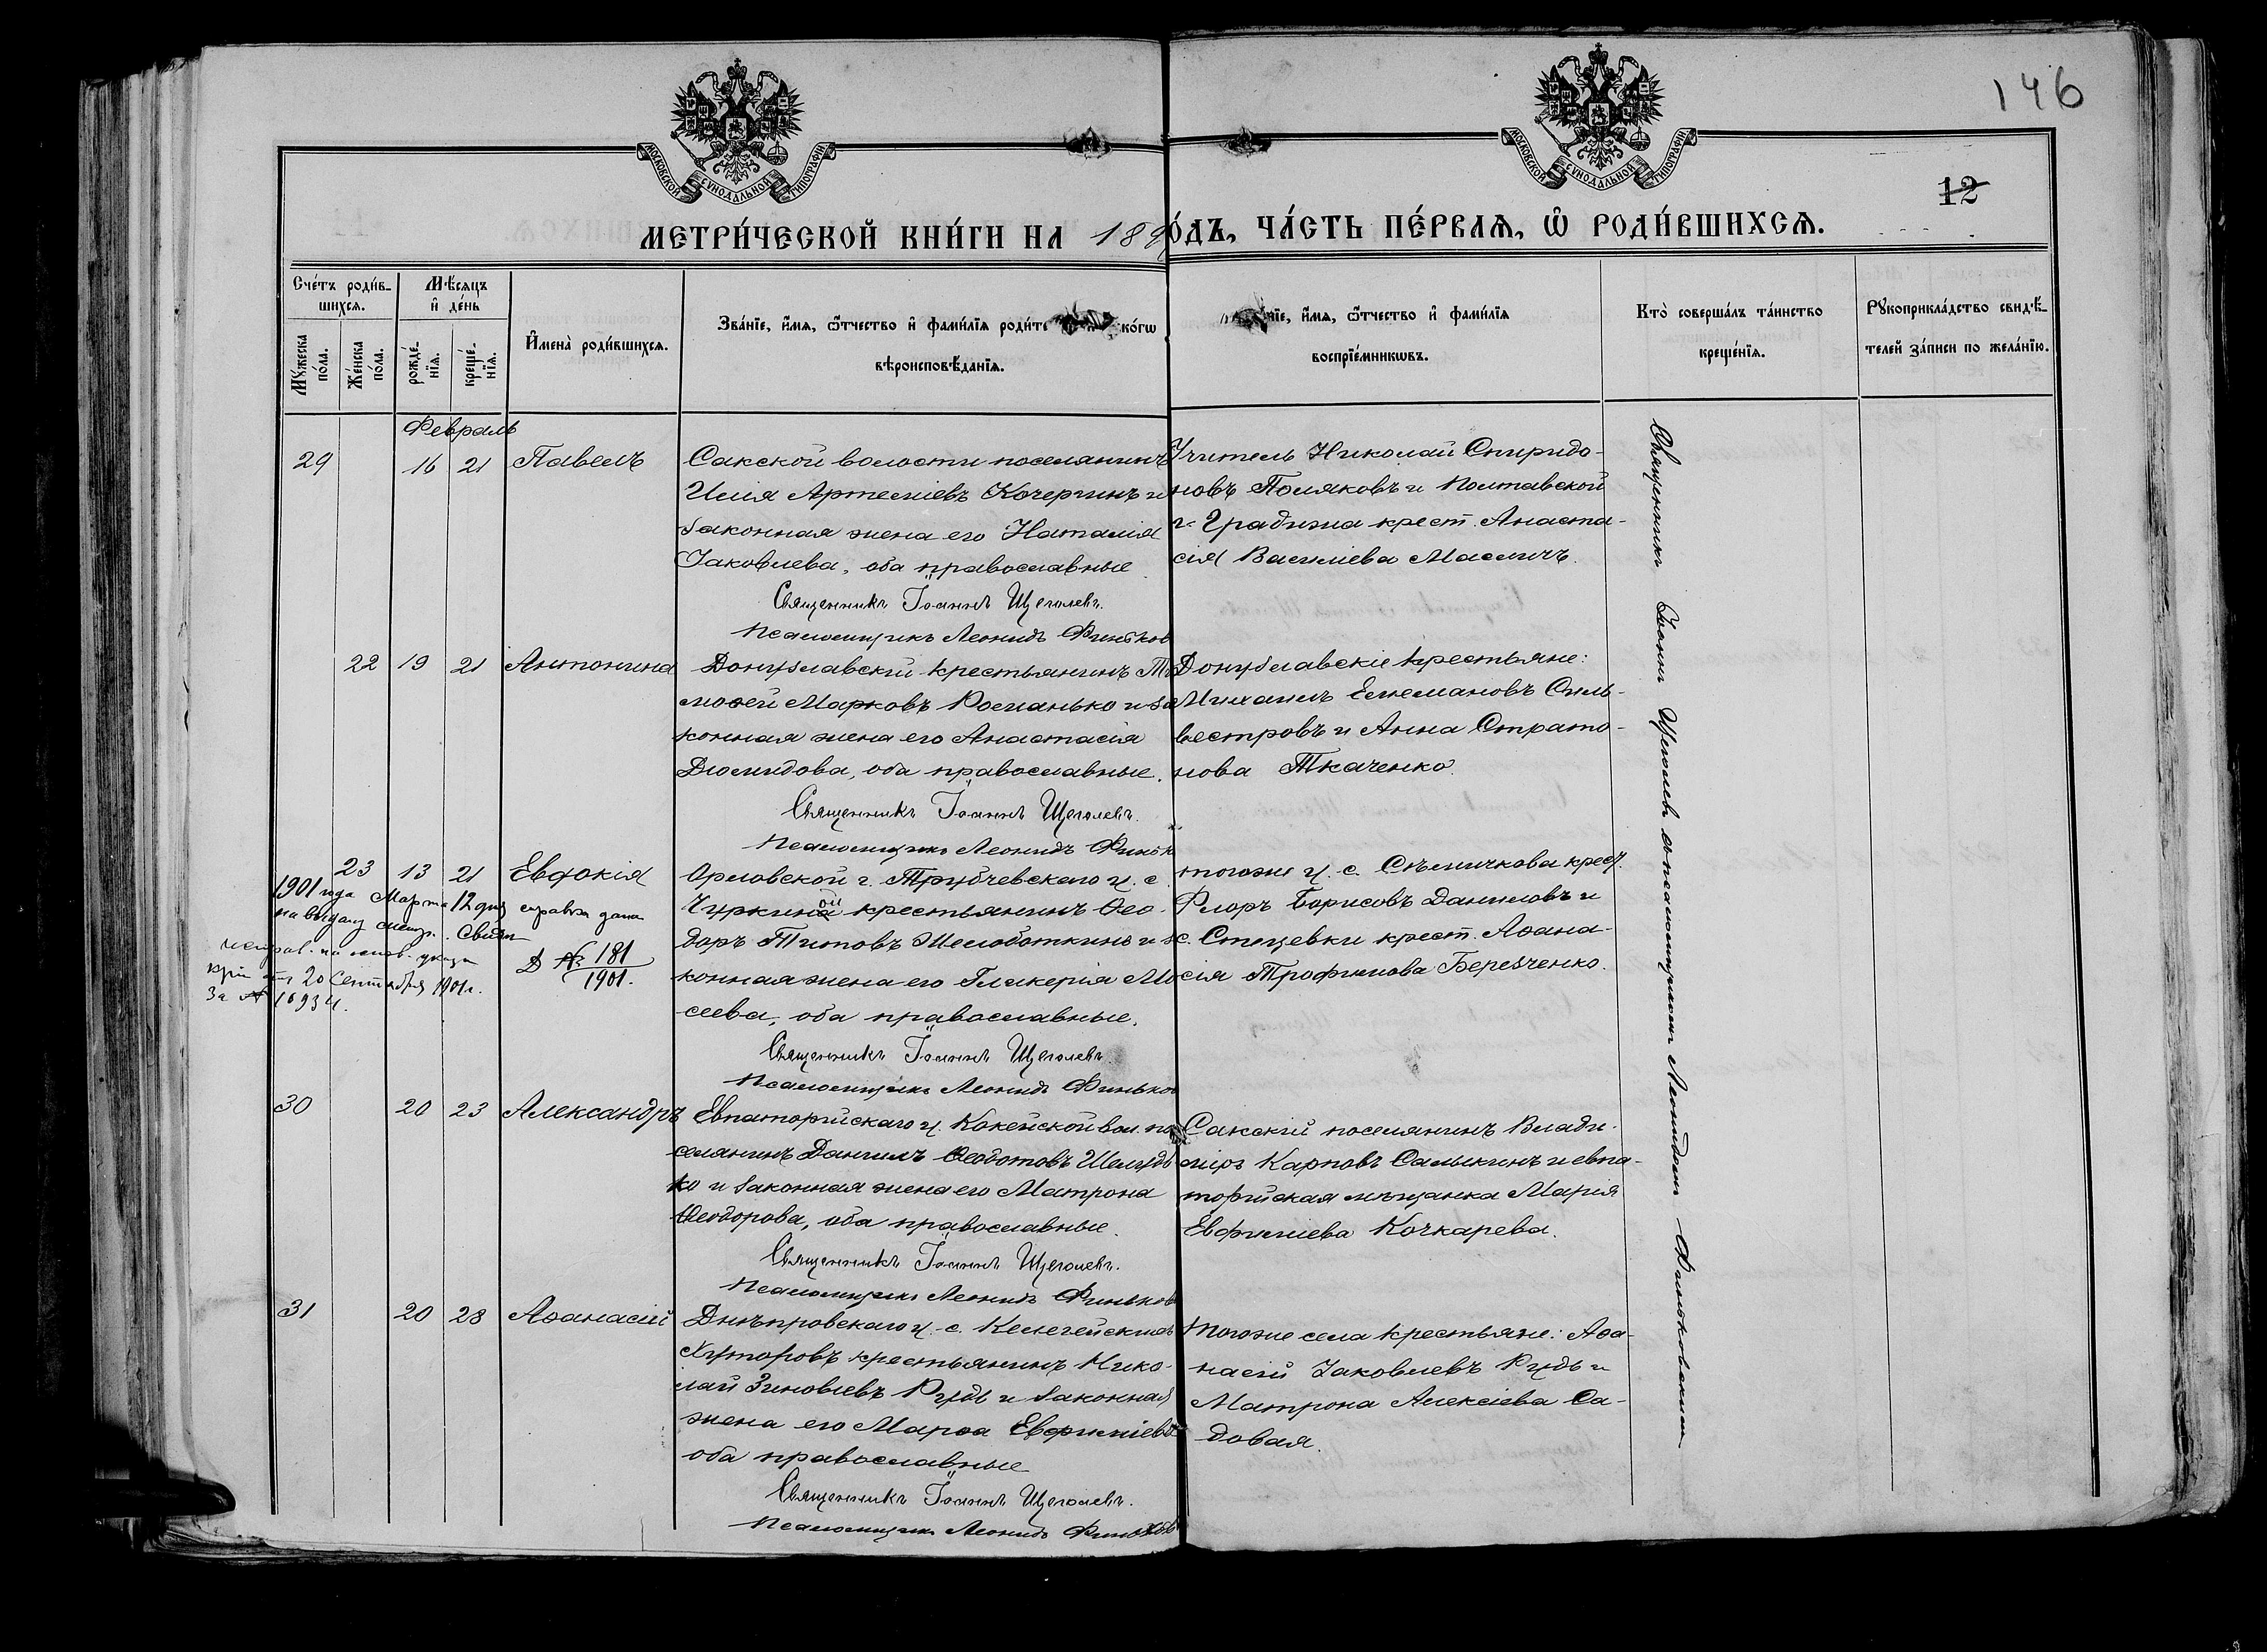 146
12
МОСКОВСКОЙ СѴНОДАЛЬНОЙ ТИПОГРАФІИ
МОСКОВСКОЙ СѴНОДАЛЬНОЙ ТИПОГРАФІИ
МЕТРИ́ЧЕСКОЙ КНИ́ГИ НА 189 О́ДЪ, ЧА́СТЬ ПЕ́РВАѦ, Ѽ РОДИ́ВШИХСѦ.
Сче́тъ роди́в-
шихсѧ.
Мꙋ́жеска по́ла.
Же́нска по́ла.
Мѣ́сѧцъ
и҆ де́нь
рожде́-
нїѧ.
креще́-
нїѧ.
И҆мена̀ роди́вшихсѧ.
Зва́нїе, и҆́мѧ, ѻ҆́тчество и҆ фами́лїѧ роди́те ко́гѡ
вѣроисповѣ́данїѧ.
нїе, и҆́мѧ, ѻ҆́тчество и҆ фами́лїѧ
воспрїе́мникѡвъ.
Кто̀ соверша́лъ та́инство
креще́нїѧ.
Рꙋкоприкла́дство свидѣ́-
телей за́писи по жела́нїю.
Февраль
29 16 21 Павелъ
Сакской волости поселянинъ
Илія Артеміевъ Кочергинъ и
законная жена его Наталія
Іаковлева, оба православные
Священникъ Іоаннъ Щеголевъ.
Псаломщикъ Леонидъ Финьков
Учитель Николай Спиридо-
новъ Поляковъ и Полтавской
г. Градижа крест. Анаста-
сія Василіева Масличъ.
22 19 21 Антонина
Донузлавскій крестьянинъ Ти
моѳей Марковъ Романько и за
конная жена его Анастасія
Діомидова, оба православные.
Священникъ Іоаннъ Щеголевъ.
Псаломщикъ Леонидъ Финьк
Донузлавскіе крестьяне:
Михаилъ Елемановъ Силь-
вестровъ и Анна Страто-
нова Ткаченко.
23 13 21 Евдокія
1901 года Марта 12 дня справка дана
на выдачу метр. свидет
исправ. на основ. указа
от 20 Сентября 1901 г.
За № 16934.
Д № 181
1901.
Орловской г. Трубчевскаго у. с.
Чуркиной крестьянинъ Ѳео-
доръ Титовъ Шелоботкинъ и за
конная жена его Гликерія Мо
сеева, оба православные.
Священникъ Іоаннъ Щеголевъ.
Псаломщикъ Леонидъ Финьков
тогоже у. с. Съмичкова крест.
Флоръ Борисовъ Даниловъ и
с. Стецевки крест. Аѳана-
сія Трофимова Березченко.
30 20 23 Александръ
Евпаторійскаго у. Кокейской вол. по
селянинъ Даніилъ Ѳеодотовъ Шелудь
ко и законная жена его Матрона
Ѳеодорова, оба православные.
Священникъ Іоаннъ Щеголевъ.
Псаломщикъ Леонидъ Финьков
Сакскій поселянинъ Влади-
міръ Карповъ Салыкинъ и евпа-
торійская мѣщанка Марія
Евфиміева Кочкарева.
31 20 28 Аѳанасій
Днѣпровскаго у. с. Келегейскихъ
Хуторовъ крестьянинъ Нико-
лай Зиновьевъ Рудь и законная
жена его Марѳа Евфиміева
оба православные
Священникъ Іоаннъ Щеголевъ.
Псаломщикъ Леонидъ Финьков
Тогоже села крестьяне: Аѳа-
насій Іаковлевъ Рудь и
Матрона Алексіева Са-
довая.
Священникъ Іоаннъ Щеголевъ съ псаломщикомъ Леонидомъ Финьковскимъ